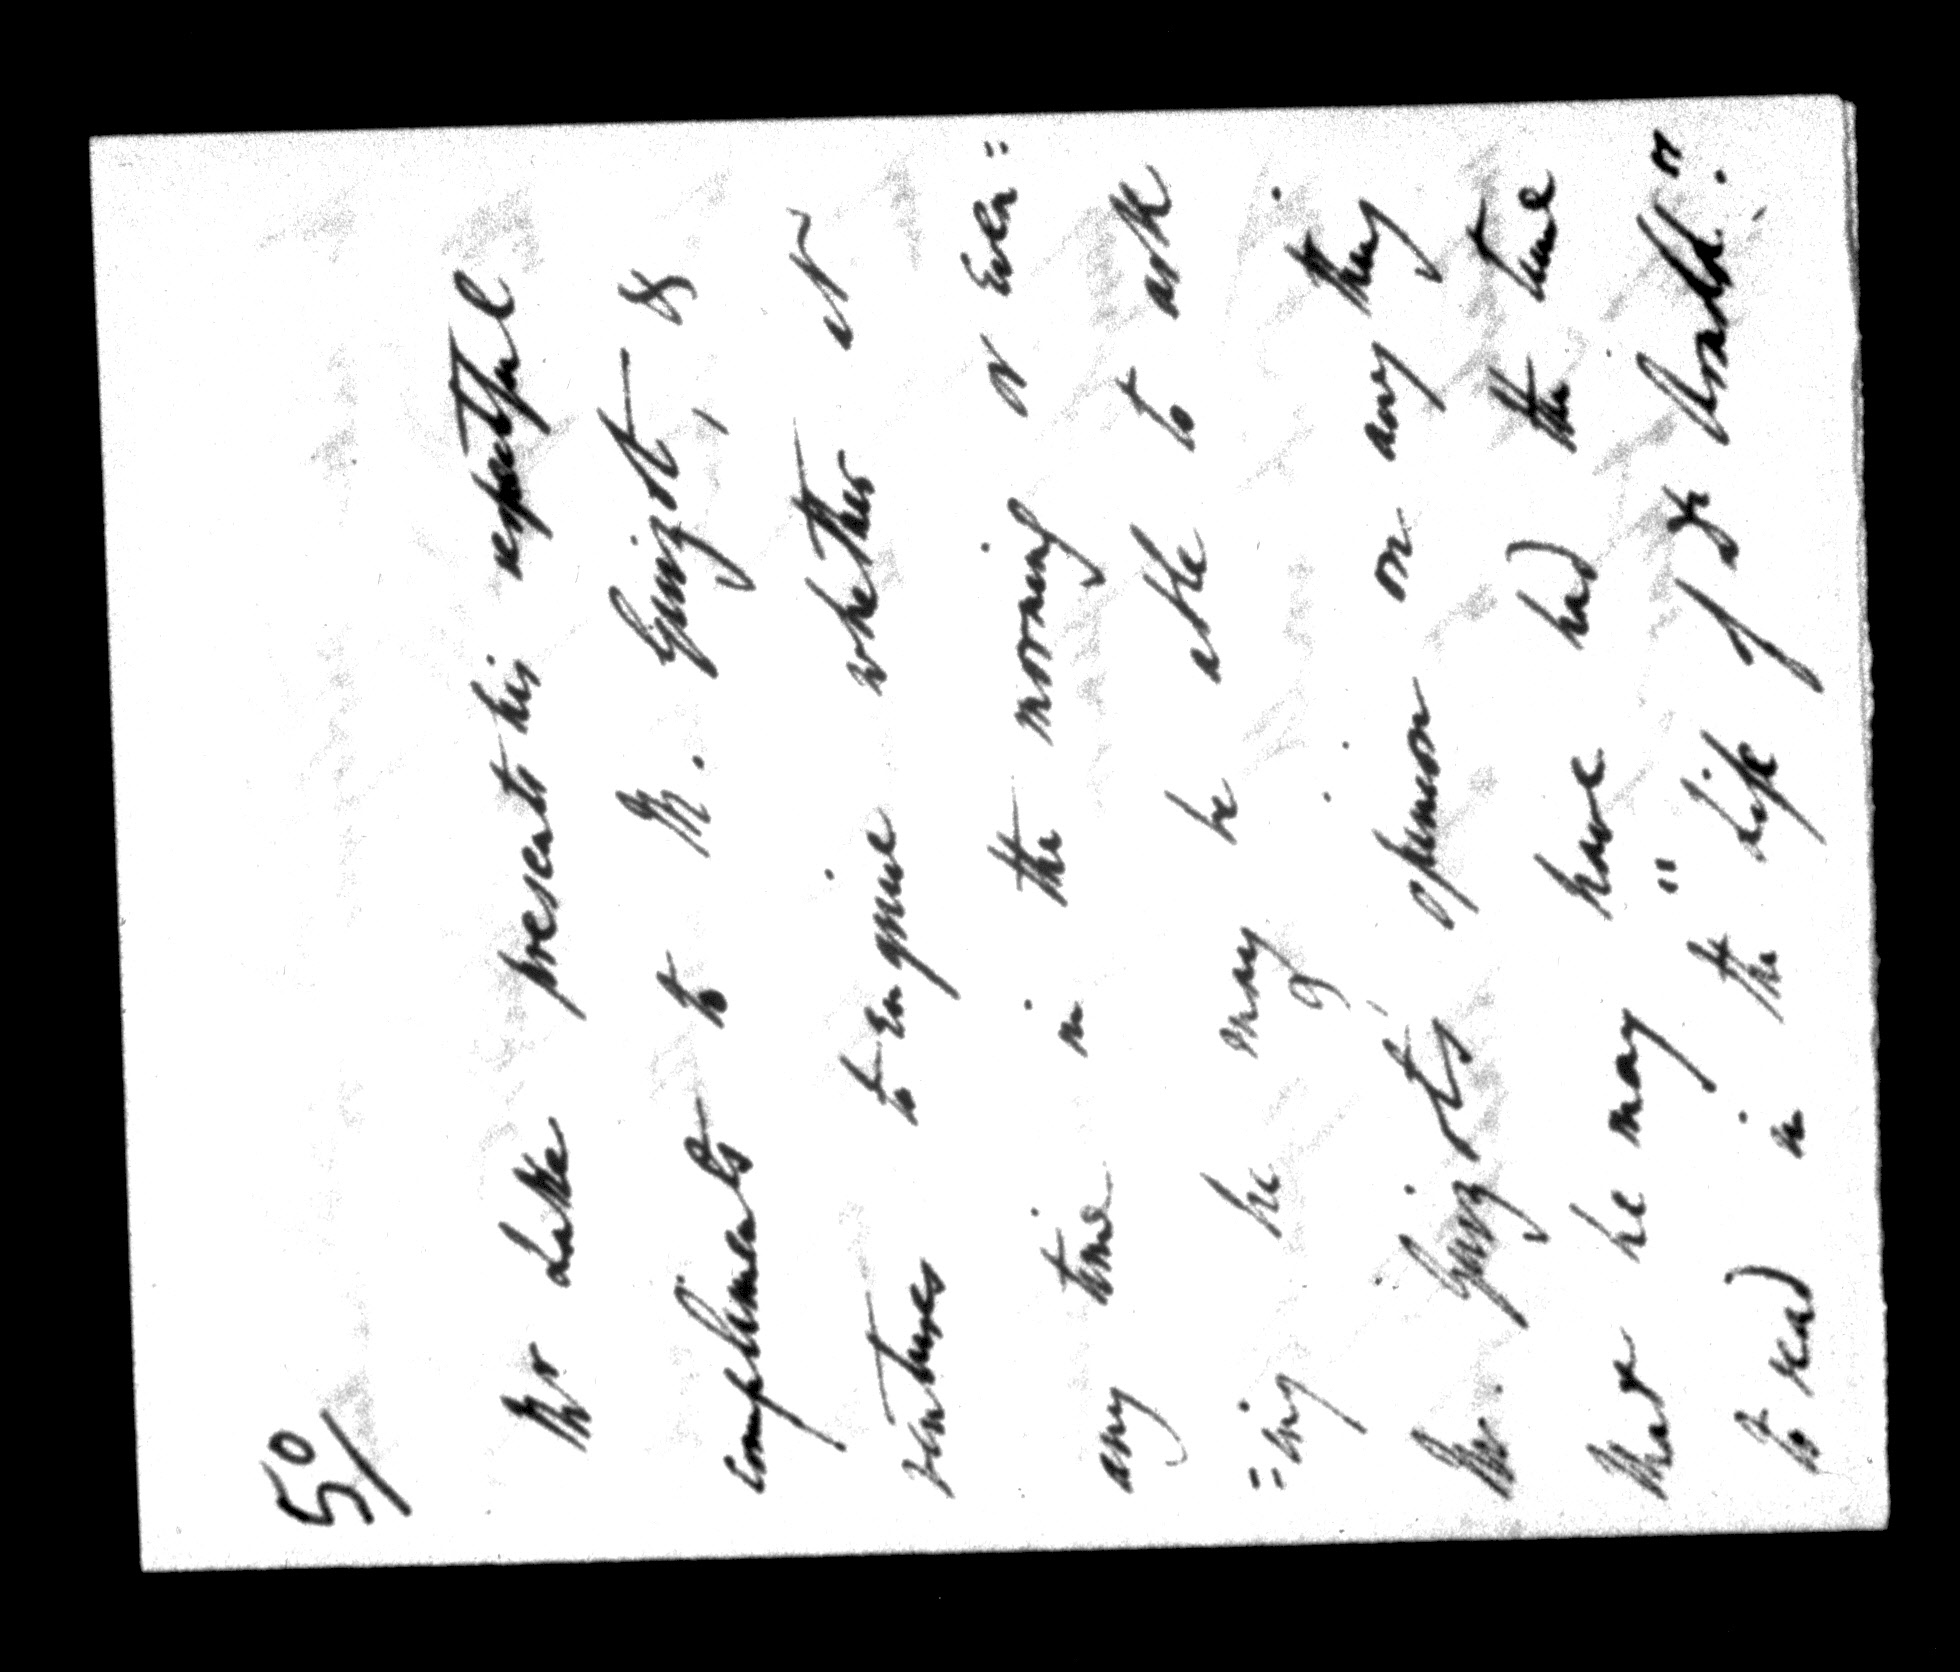 5°/
Mr Lake presents his respectful
compliments to M. Guizot, &
ventures to Enquire whether at
any time in the morning or Even=
=ing he may be able to ask
M. Guizot's opinion on any thing
that he may have had the time
to read in the "Life of Dr Arnold."